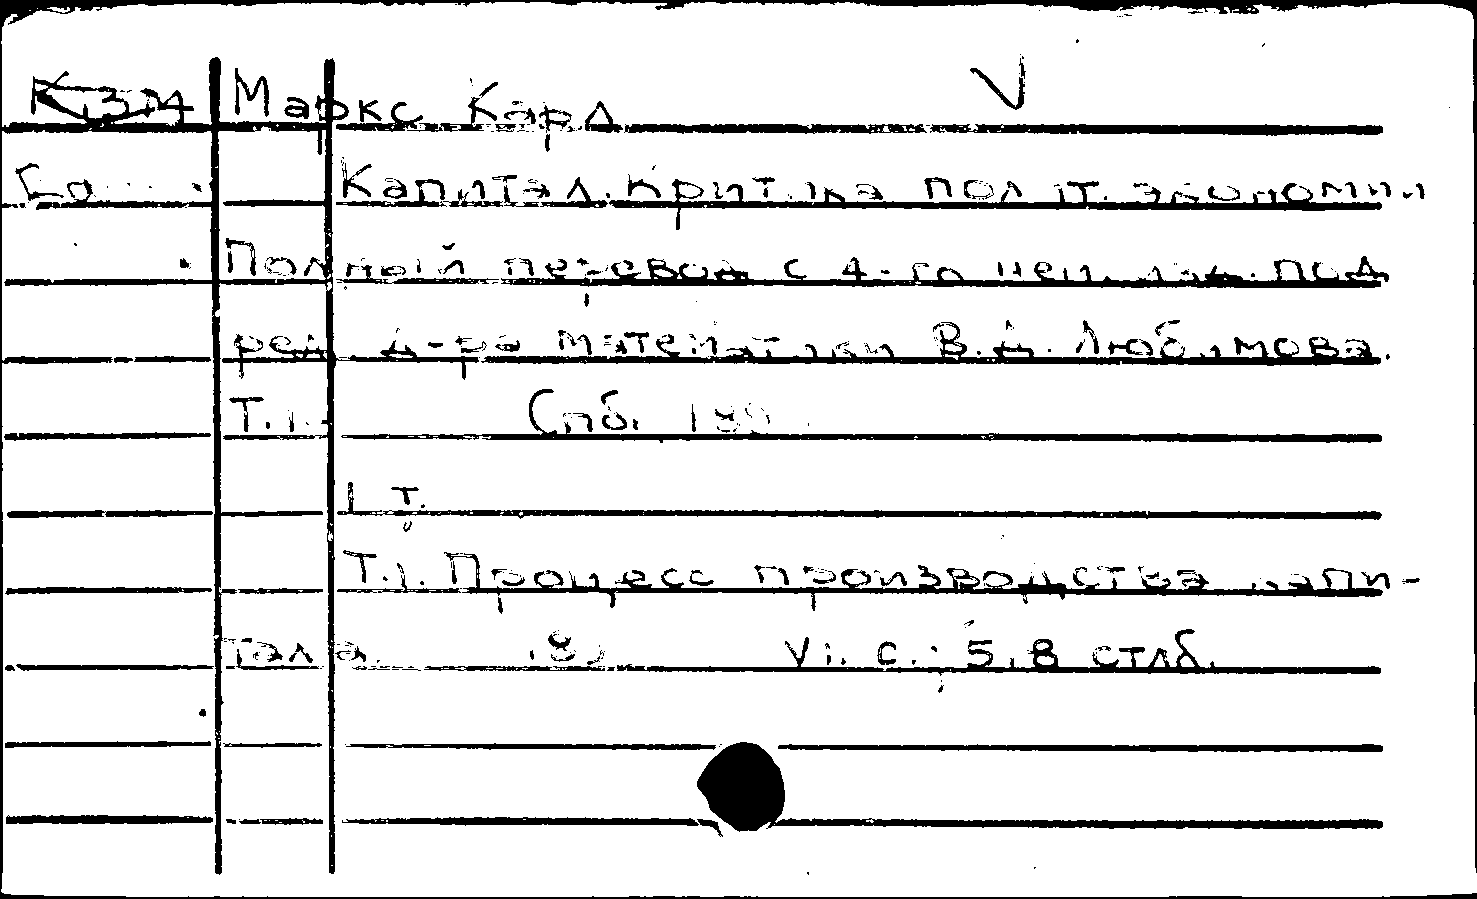 КЗМ Маркс Карл V
Капитал. Критика полит. экономии
Полный перевод с 4-го нем. изд. под
ред. д-ра математики В.Д. Любимова.
Т.1. Спб.
1 т.
Т.1. Процесс производства капи-
тала. VI. с.; 5.8 стлб.